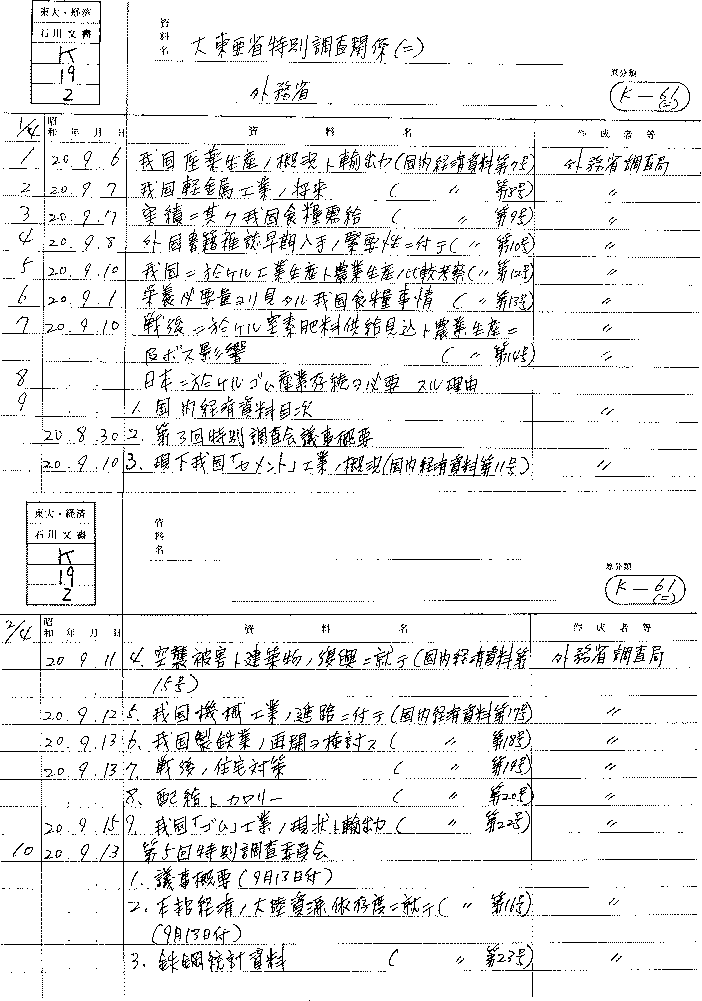 東大・経済
石川文書
K
19
2
資料名
大東亜省特別調査関係(二)
外務省
原分類
K-61
(二)
1/4 昭和 年 月 日 資 料 名 作成者等
1 20.9.6 我国産業生産ノ概況ト輸出力(国内経済資料第7号) 外務省調査局
2 20.9.7 我国軽金属工業ノ将来 ( 〃 第8号) 〃
3 20.9.7 実績ニ基ク我国食糧需給 ( 〃 第9号) 〃
4 20.9.8 外国書籍雑誌早期入手ノ緊要性ニ付テ( 〃 第10号) 〃
5 20.9.10 我国ニ於ケル工業生産ト農業生産ノ比較考察( 〃 第12号) 〃
6 20.9.1 栄養必要量ヨリ見タル我国食糧事情 ( 〃 第13号) 〃
7 20.9.10 戦後ニ於ケル窒素肥料供給見込ト農業生産ニ
及ボス影響 ( 〃 第14号) 〃
8 日本ニ於ケルゴム産業存続ヲ必要 スル理由
9 1. 国内経済資料目次 〃
20.8.30 2. 第3回特別調査会議事概要
20.9.10 3. 現下我国「セメント」工業ノ概況(国内経済資料第11号) 〃
東大・経済
石川文書
K
19
2
資料名
原分類
K-61
(二)
2/4 昭和 年 月 日 資 料 名 作成者等
20.9.11 4. 空襲被害ト建築物ノ復興ニ就テ(国内経済資料第 外務省調査局
15号)
20.9.12 5. 我国機械工業ノ進路ニ付テ(国内経済資料第17号) 〃
20.9.13 6. 我国製鉄業ノ再開ヲ検討ス ( 〃 第18号) 〃
20.9.13 7. 戦後ノ住宅対策 ( 〃 第19号) 〃
8. 配給トカロリー ( 〃 第20号) 〃
20.9.15 9. 我国「ゴム」工業ノ現状ト輸出力 ( 〃 第22号) 〃
10 20.9.13 第5回特別調査委員会
1. 議事概要(9月13日付)
2. 本邦経済ノ大陸資源依存度ニ就テ( 〃 第16号) 〃
(9月13日付)
3. 鉄鋼統計資料 ( 〃 第23号) 〃